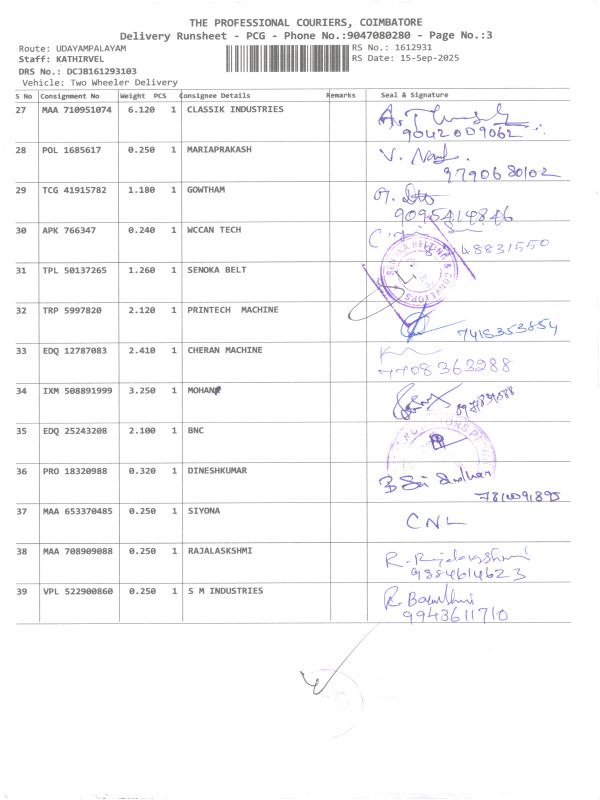 THE PROFESSIONAL COURIERS, COIMBATORE
Delivery Runsheet - PCG - Phone No.:9047080280 - Page No.:3
Route: UDAYAMPALAYAM RS No.: 1612931
Staff: KATHIRVEL RS Date: 15-Sep-2025
DRS No.: DCJB161293103
Vehicle: Two Wheeler Delivery
S No Consignment No Weight PCS Consignee Details Remarks Seal & Signature
27 MAA 710951074 6.120 1 CLASSIK INDUSTRIES
9042009062
28 POL 1685617 0.250 1 MARIAPRAKASH V.
9790680102
29 TCG 41915782 1.180 1 GOWTHAM
9095414846
30 APK 766347 0.240 1 WCCAN TECH
48831550
31 TPL 50137265 1.260 1 SENOKA BELT
32 TRP 5997820 2.120 1 PRINTECH MACHINE
7415353854
33 EDQ 12787083 2.410 1 CHERAN MACHINE
7708363288
34 IXM 508891999 3.250 1 MOHAN
35 EDQ 25243208 2.100 1 BNC
36 PRO 18320988 0.320 1 DINESHKUMAR
37 MAA 653370485 0.250 1 SIYONA CNL
38 MAA 708909088 0.250 1 RAJALASKSHMI R. Rajalakshmi
9884614623
39 VPL 522900860 0.250 1 S M INDUSTRIES R.
9943611710